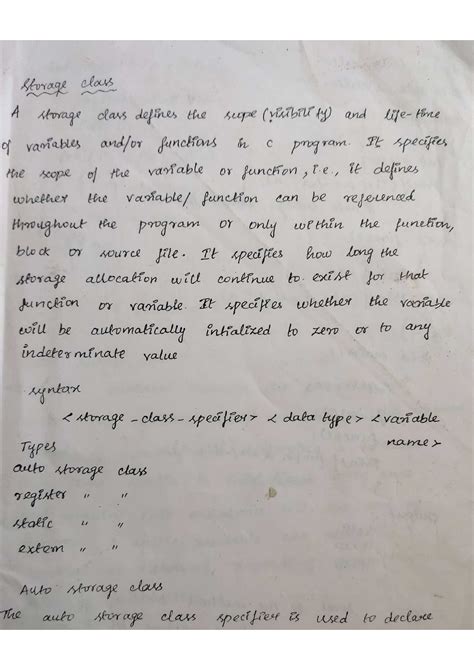 Storage class
A storage class defines the scope (visibility) and life-time
of variables and/or functions in c program. It specifies
the scope of the variable or function, i.e., it defines
whether the variable/ function can be referenced
throughout the program or only within the function,
block or source file. It specifies how long the
storage allocation will continue to exist for that
function or variable. It specifies whether the variable
will be automatically intialized to zero or to any
indeterminate value
syntax
<storage_class_specifier> <data type> <variable
name>
Types
auto storage class
register " "
static " "
extern " "
Auto storage class
The auto storage class specifier is used to declare